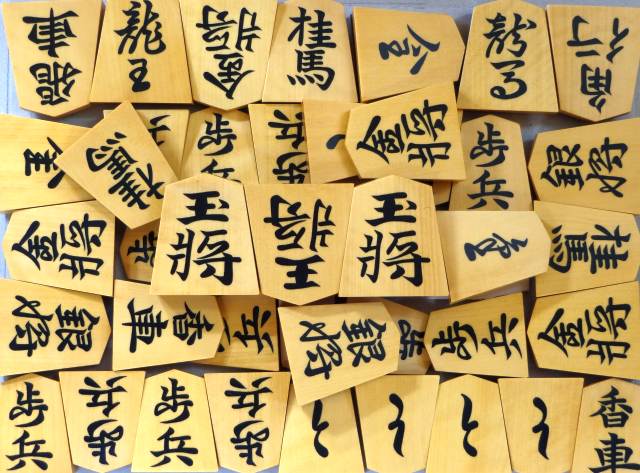 香車
龍王
金将
桂馬
龍馬
角行
桂馬
歩兵
歩兵
金将
歩兵
銀将
金将
歩
玉將
王将
玉將
桂馬
銀将
香車
兵
銀将
歩
歩兵
金将
歩兵
歩兵
歩兵
歩兵
と
と
と
と
香車